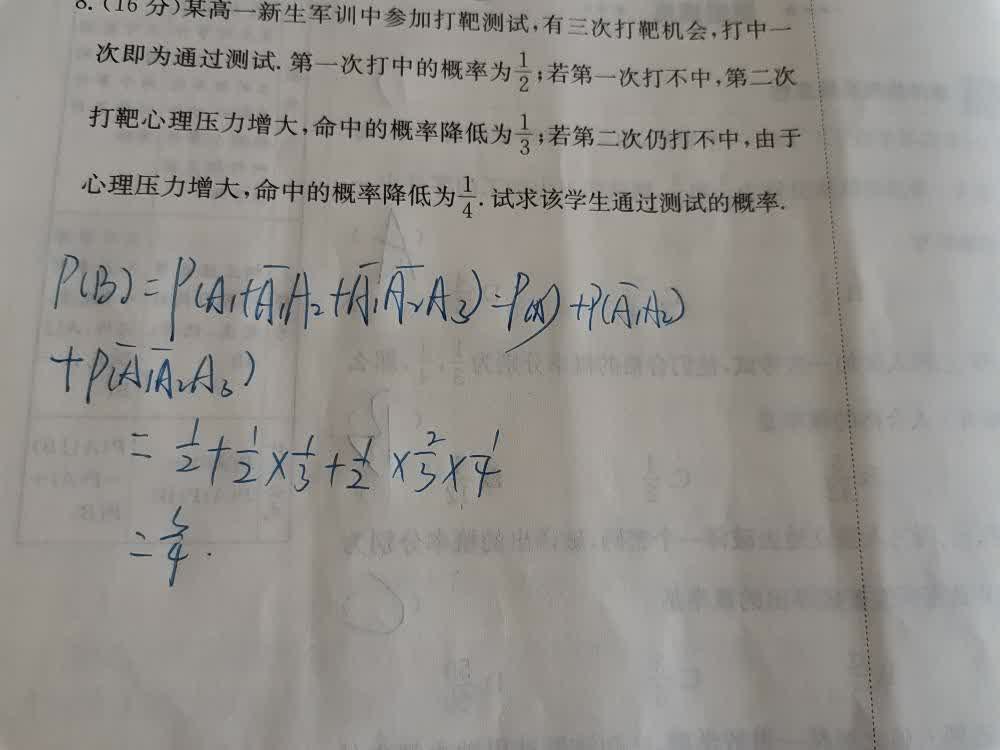 8.(16分)某高一新生军训中参加打靶测试,有三次打靶机会,打中一
次即为通过测试.第一次打中的概率为1/2;若第一次打不中,第二次
打靶心理压力增大,命中的概率降低为1/3;若第二次仍打不中,由于
心理压力增大,命中的概率降低为1/4.试求该学生通过测试的概率.
P(B)=P(A₁+A̅₁A₂+A̅₁A̅₂A₃)=P(A₁)+P(A̅₁A₂)
+P(A̅₁A̅₂A₃)
=1/2+1/2×1/3+1/2×2/3×1/4
=3/4.